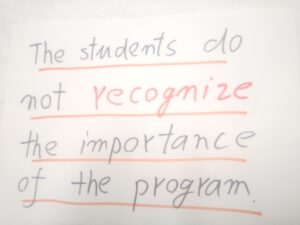 The students do
not recognize
the importance
of the program.